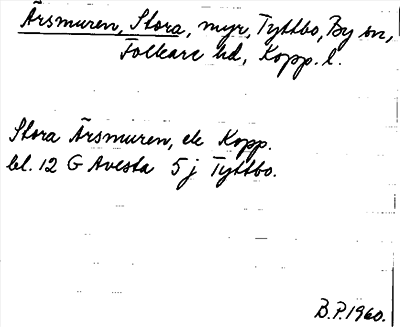 Ärsmuren, Stora, myr, Tyttbo, By sn,
Folkare hd, Kopp. l.
Stora Ärsmuren, ek Kopp.
bl. 12 G Avesta 5 j Tyttbo.
B.P. 1960.